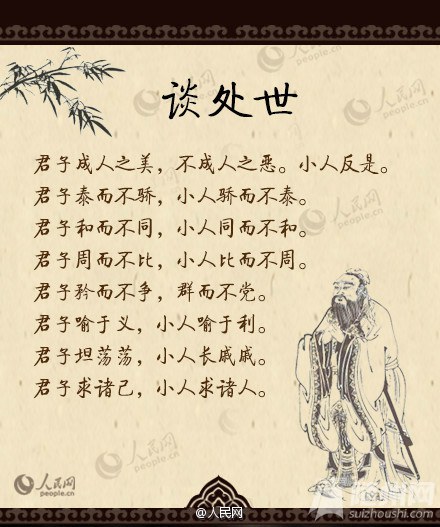 人民网
people.cn
人民网
people.cn
谈处世
君子成人之美，不成人之恶。小人反是。
君子泰而不骄，小人骄而不泰。
君子和而不同，小人同而不和。
君子周而不比，小人比而不周。
君子矜而不争，群而不党。
君子喻于义，小人喻于利。
君子坦荡荡，小人长戚戚。
君子求诸己，小人求诸人。
人民网
people.cn
人民网
people.cn
人民网
people.cn
人民网
people.cn
@人民网
suizhoushi.com